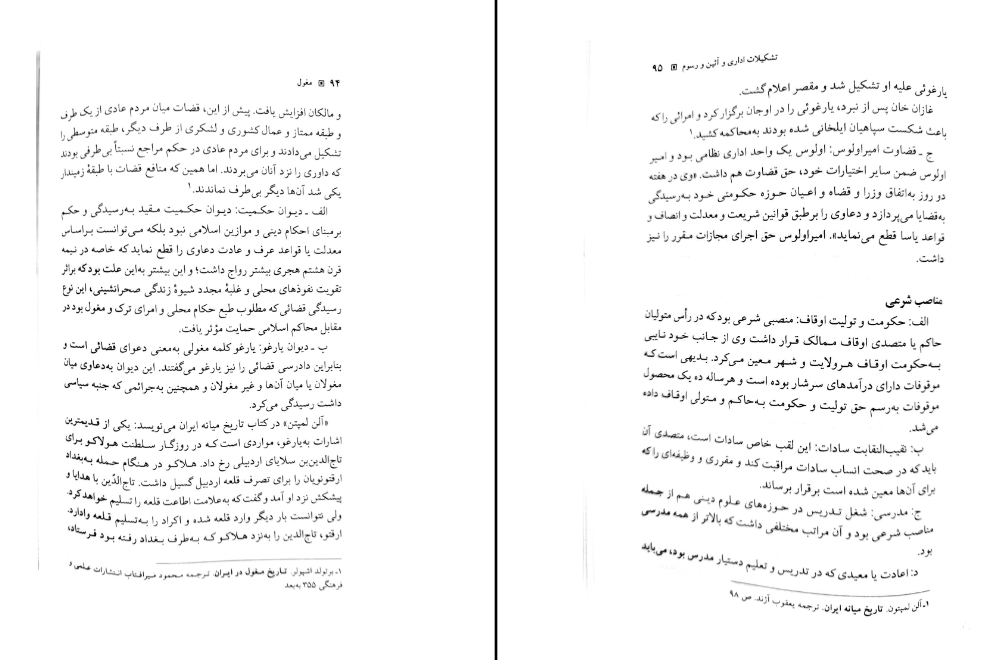 ۹۴ ▣ مغول
و مالکان افزایش یافت. پیش از این، قضات میان مردم عادی از یک طرف
و طبقه ممتاز و عمال کشوری و لشگری از طرف دیگر، طبقه متوسطی را
تشکیل می‌دادند و برای مردم عادی در حکم مراجع نسبتاً بی‌طرفی بودند
که داوری را نزد آنان می‌بردند. اما همین که منافع قضات با طبقهٔ زمیندار
یکی شد آن‌ها دیگر بی‌طرف نماندند.۱
الف ـ دیوان حکمیت: دیوان حکمیت مقید به‌رسیدگی و حکم
برمبنای احکام دینی و موازین اسلامی نبود بلکه می‌توانست براساس
معدلت یا قواعد عرف و عادت دعاوی را قطع نماید که خاصه در نیمه
قرن هشتم هجری بیشتر رواج داشت؛ و این بیشتر به‌این علت بودکه براثر
تقویت نفوذهای محلی و غلبهٔ مجدد شیوهٔ زندگی صحرانشینی، این نوع
رسیدگی قضائی که مطلوب طبع حکام محلی و امرای ترک و مغول بود در
مقابل محاکم اسلامی حمایت مؤثر یافت.
ب ـ دیوان یارغو: یارغو کلمه مغولی به‌معنی دعوای قضائی است و
بنابراین دادرسی قضائی را نیز یارغو می‌گفتند. این دیوان به‌دعاوی میان
مغولان یا میان آن‌ها و غیر مغولان و همچنین به‌جرائمی که جنبه سیاسی
داشت رسیدگی می‌کرد.
«آلن لمپتن» در کتاب تاریخ میانه ایران می‌نویسد: یکی از قدیمترین
اشارات به‌یارغو، مواردی است که در روزگار سلطنت هولاکو برای
تاج‌الدین‌بن سلایای اردبیلی رخ داد. هلاکو در هنگام حمله به‌بغداد
ارقتونویان را برای تصرف قلعه اردبیل گسیل داشت. تاج‌الدّین با هدایا و
پیشکش نزد او آمد و گفت که به‌علامت اطاعت قلعه را تسلیم خواهد کرد.
ولی نتوانست بار دیگر وارد قلعه شده و اکراد را به‌تسلیم قلعه وادارد.
ارقتو، تاج‌الدین را به‌نزد هلاکو که به‌طرف بغداد رفته بود فرستاد،
۱ـ برتولد اشپولر. تاریخ مغول در ایران. ترجمه محمود میرآفتاب انتشارات علمی و
فرهنگی ۳۵۵ به‌بعد
تشکیلات اداری و آئین و رسوم ▣ ۹۵
یارغوئی علیه او تشکیل شد و مقصر اعلام گشت.
غازان خان پس از نبرد، یارغوئی را در اوجان برگزار کرد و امرائی را که
باعث شکست سپاهیان ایلخانی شده بودند به‌محاکمه کشید.۱
ج ـ قضاوت امیراولوس: اولوس یک واحد اداری نظامی بود و امیر
اولوس ضمن سایر اختیارات خود، حق قضاوت هم داشت. «وی در هفته
دو روز به‌اتفاق وزرا و قضاه و اعیان حوزه حکومتی خود به‌رسیدگی
به‌قضایا می‌پردازد و دعاوی را برطبق قوانین شریعت و معدلت و انصاف و
قواعد یاسا قطع می‌نماید». امیراولوس حق اجرای مجازات مقرر را نیز
داشت.
مناصب شرعی
الف: حکومت و تولیت اوقاف: منصبی شرعی بودکه در رأس متولیان
حاکم یا متصدی اوقاف ممالک قرار داشت وی از جانب خود نایی
به‌حکومت اوقاف هرولایت و شهر معین می‌کرد. بدیهی است که
موقوفات دارای درآمدهای سرشار بوده است و هرساله ده یک محصول
موقوفات به‌رسم حق تولیت و حکومت به‌حاکم و متولی اوقاف داده
می‌شد.
ب: نقیب‌النقابت سادات: این لقب خاص سادات است، متصدی آن
باید که در صحت انساب سادات مراقبت کند و مقرری و وظیفه‌ای را که
برای آن‌ها معین شده است برقرار برساند.
ج: مدرسی: شغل تدریس در حوزه‌های علوم دینی هم از جمله
مناصب شرعی بود و آن مراتب مختلفی داشت که بالاتر از همه مدرسی
بود.
د: اعادت یا معیدی که در تدریس و تعلیم دستیار مدرس بود، می‌باید
۱ـ آلن لمپتون. تاریخ میانه ایران. ترجمه یعقوب آژند. ص ۹۸